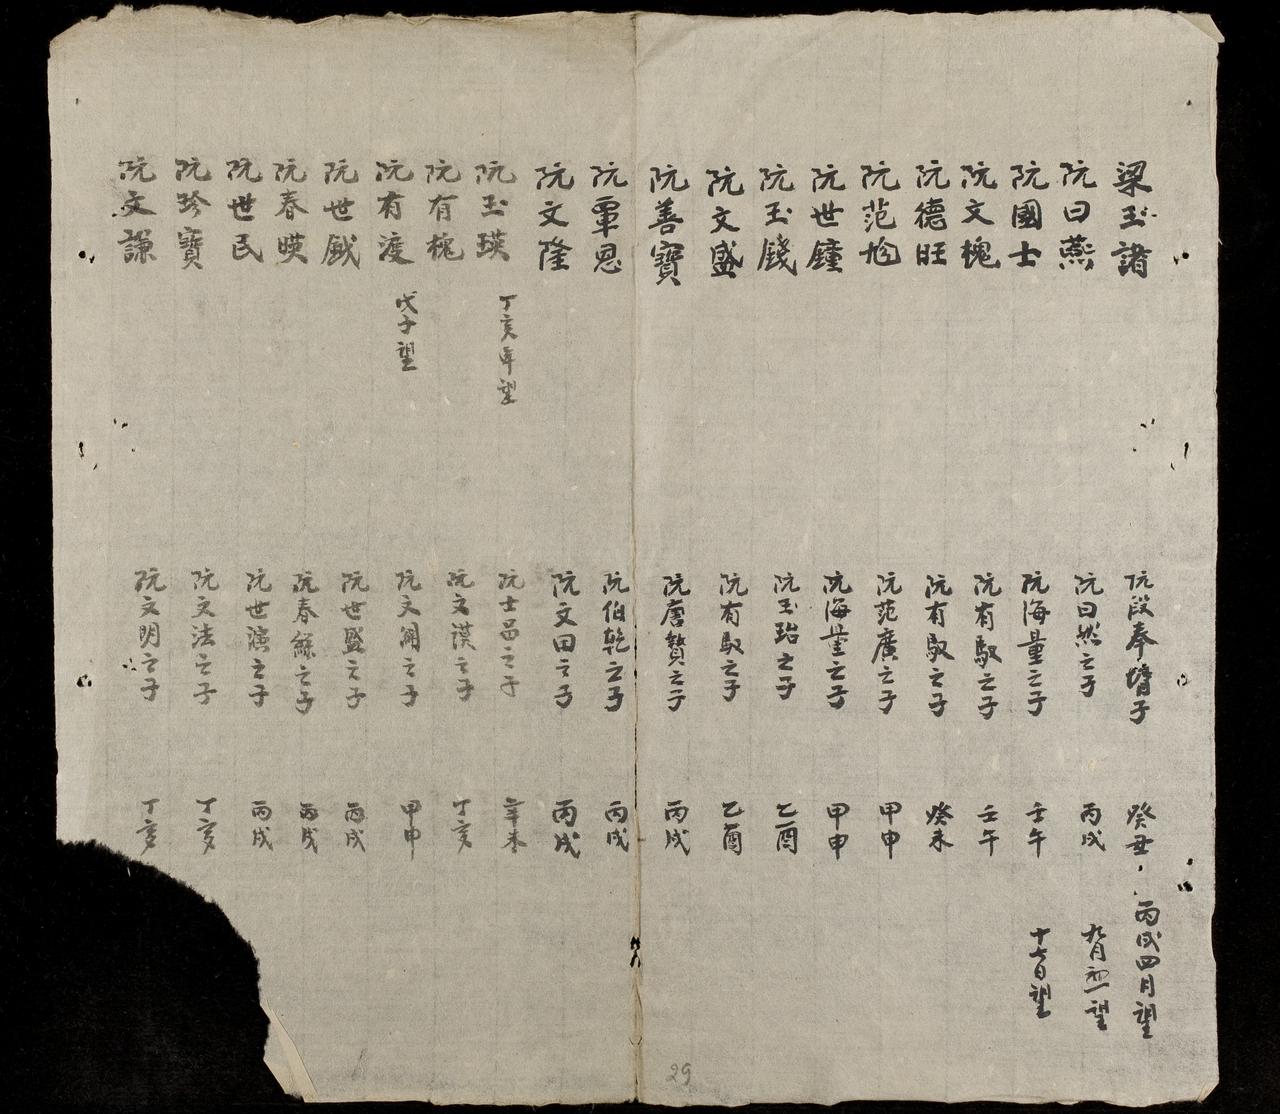 梁玉諸 阮段奉壻子 癸丑 丙戌四月望
阮曰燕 阮曰然之子 丙戌 九月初一望
阮國士 阮海量之子 壬午 十七日望
阮文槐 阮有馭之子 壬午
阮德旺 阮有馭之子 癸未
阮范 阮范廣之子 甲申
阮世鐘 阮海量之子 甲申
阮玉錢 阮玉珆之子 乙酉
阮文盛 阮有馭之子 乙酉
阮善寶 阮唐贊之子 丙戌
阮覃恩 阮伯乾之子 丙戌
阮文隆 阮文田之子 丙戌
阮玉瑛 丁亥年望 阮士品之子 辛未
阮有槐 阮文漢之子 丁亥
阮有渡 戊子望 阮文開之子 甲申
阮世鉞 阮世盛之子 丙戌
阮春暎 阮春縣之子 丙戌
阮世民 阮世演之子 丙戌
阮珍寶 阮文法之子 丁亥
阮文謙 阮文明之子 丁亥
29